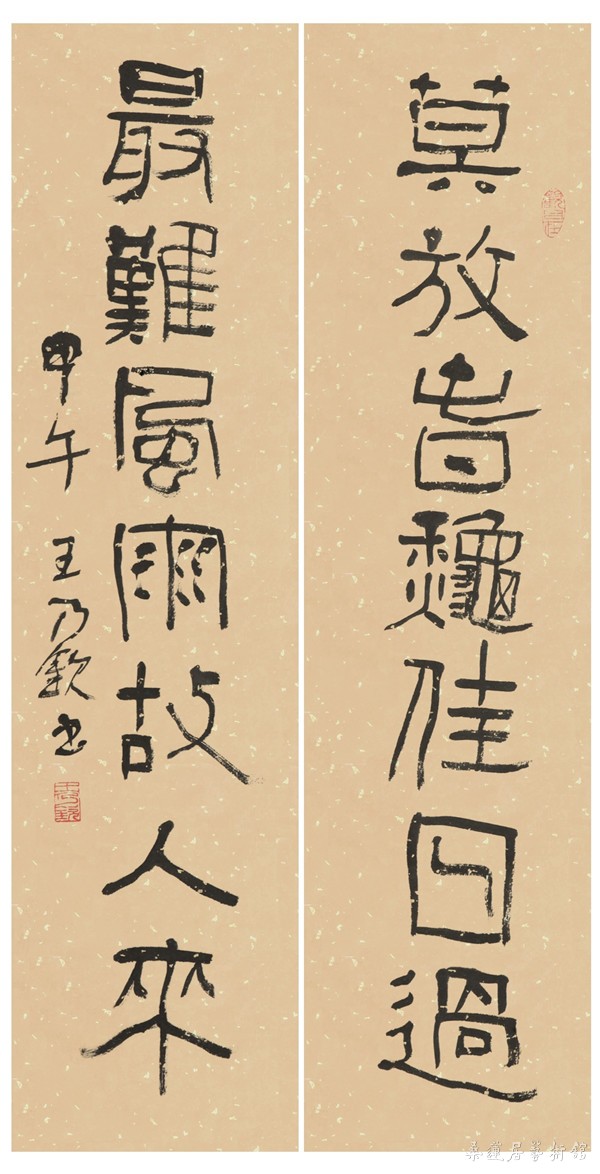 莫放旾龝佳日過
最難風雨故人來
甲午 王乃欽書
桑蓮居藝術館